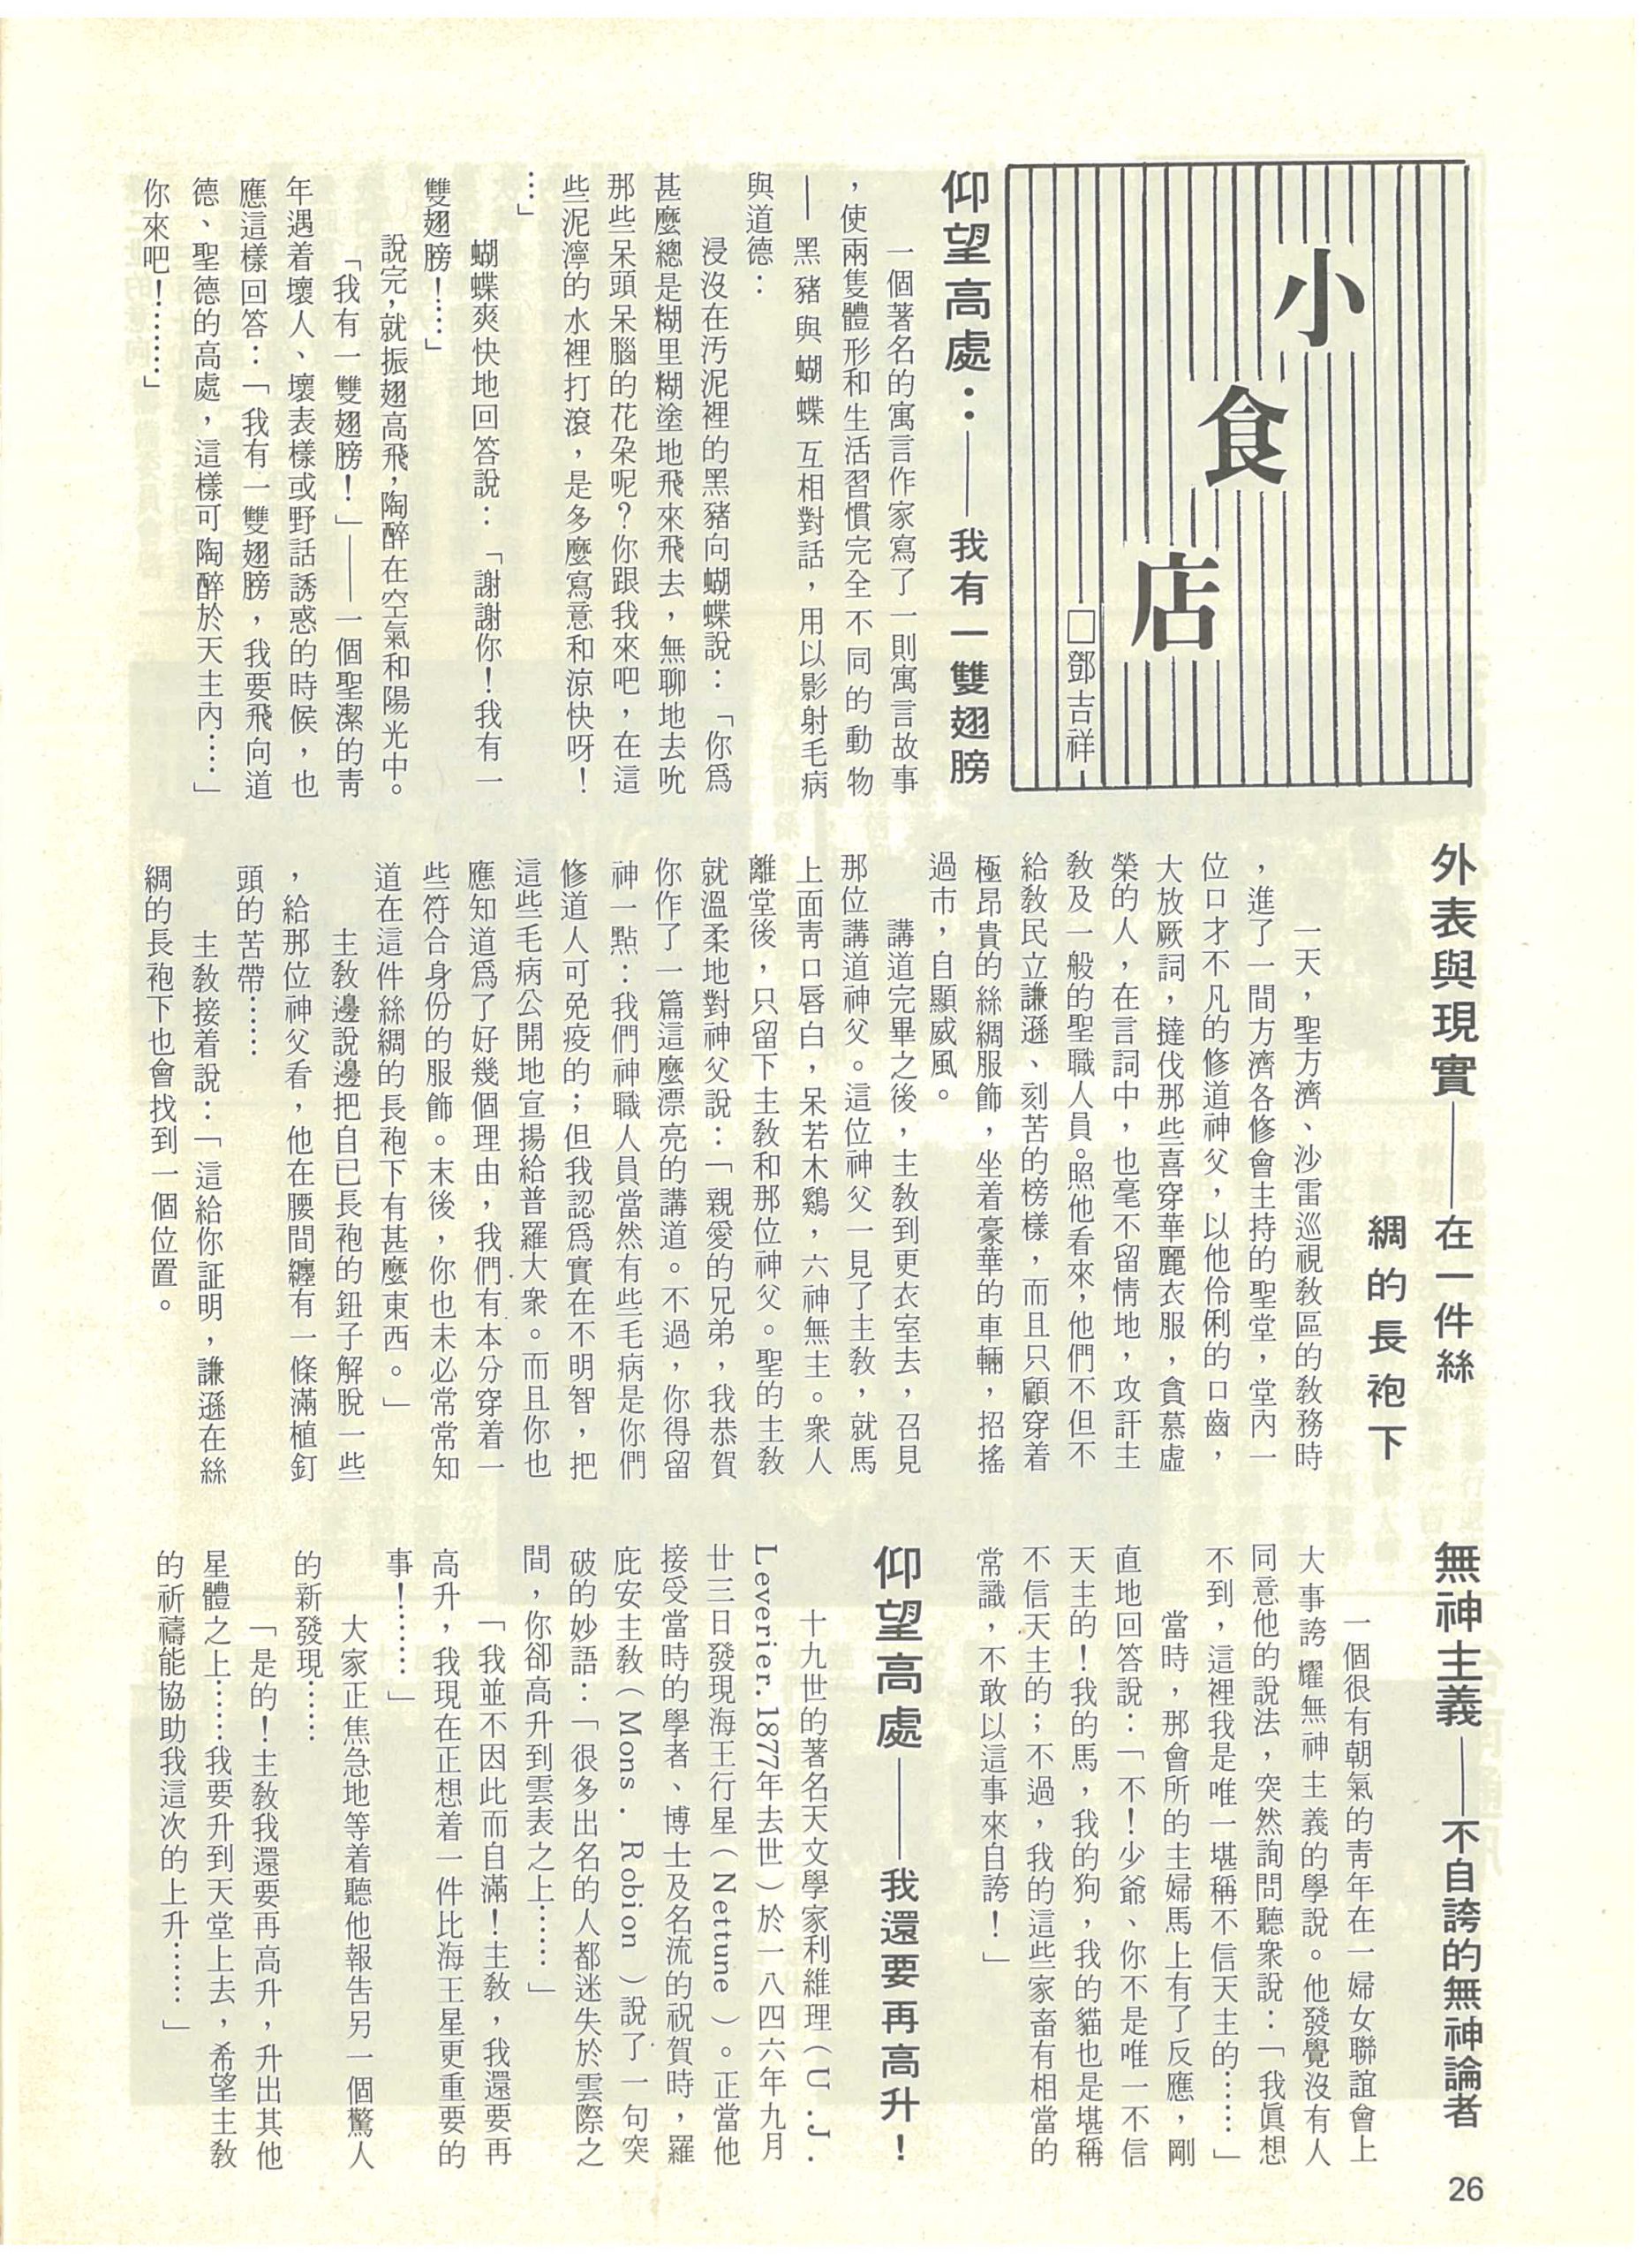 小食店
□鄧吉祥
仰望高處：——我有一雙翅膀
一個著名的寓言作家寫了一則寓言故事
，使兩隻體形和生活習慣完全不同的動物
——黑豬與蝴蝶互相對話，用以影射毛病
與道德：
浸沒在汚泥裡的黑豬向蝴蝶說：「你爲
甚麼總是糊里糊塗地飛來飛去，無聊地去吮
那些呆頭呆腦的花朶呢？你跟我來吧，在這
些泥濘的水裡打滾，是多麼寫意和涼快呀！
…」
蝴蝶爽快地回答說：「謝謝你！我有一
雙翅膀！……」
說完，就振翅高飛，陶醉在空氣和陽光中。
「我有一雙翅膀！」——一個聖潔的靑
年遇着壞人、壞表樣或野話誘惑的時候，也
應這樣回答：「我有一雙翅膀，我要飛向道
德、聖德的高處，這樣可陶醉於天主內……」
你來吧！………」
外表與現實——在一件絲
綢的長袍下
一天，聖方濟、沙雷巡視敎區的敎務時
，進了一間方濟各修會主持的聖堂，堂內一
位口才不凡的修道神父，以他伶俐的口齒，
大放厥詞，撻伐那些喜穿華麗衣服，貪慕虛
榮的人，在言詞中，也毫不留情地，攻訐主
敎及一般的聖職人員。照他看來，他們不但不
給敎民立謙遜、刻苦的榜樣，而且只顧穿着
極昂貴的絲綢服飾，坐着豪華的車輛，招搖
過市，自顯威風。
講道完畢之後，主敎到更衣室去，召見
那位講道神父。這位神父一見了主敎，就馬
上面靑口唇白，呆若木鷄，六神無主。衆人
離堂後，只留下主敎和那位神父。聖的主敎
就溫柔地對神父說：「親愛的兄弟，我恭賀
你作了一篇這麼漂亮的講道。不過，你得留
神一點：我們神職人員當然有些毛病是你們
修道人可免疫的；但我認爲實在不明智，把
這些毛病公開地宣揚給普羅大衆。而且你也
應知道爲了好幾個理由，我們有本分穿着一
些符合身份的服飾。末後，你也未必常常知
道在這件絲綢的長袍下有甚麼東西。」
主敎邊說邊把自已長袍的鈕子解脫一些
，給那位神父看，他在腰間纏有一條滿植釘
頭的苦帶……
主敎接着說：「這給你証明，謙遜在絲
綢的長袍下也會找到一個位置。
無神主義——不自誇的無神論者
一個很有朝氣的靑年在一婦女聯誼會上
大事誇耀無神主義的學說。他發覺沒有人
同意他的說法，突然詢問聽衆說：「我眞想
不到，這裡我是唯一堪稱不信天主的……」
當時，那會所的主婦馬上有了反應，剛
直地回答說：「不！少爺、你不是唯一不信
天主的！我的馬，我的狗，我的貓也是堪稱
不信天主的；不過，我的這些家畜有相當的
常識，不敢以這事來自誇！」
仰望高處——我還要再高升！
十九世的著名天文學家利維理（U.J.
Leverier.1877年去世）於一八四六年九月
廿三日發現海王行星（Nettune）。正當他
接受當時的學者、博士及名流的祝賀時，羅
庇安主敎（Mons. Robion）說了一句突
破的妙語：「很多出名的人都迷失於雲際之
間，你卻高升到雲表之上……」
「我並不因此而自滿！主敎，我還要再
高升，我現在正想着一件比海王星更重要的
事！……」
大家正焦急地等着聽他報告另一個驚人
的新發現……
「是的！主敎我還要再高升，升出其他
星體之上……我要升到天堂上去，希望主敎
的祈禱能協助我這次的上升……」
26